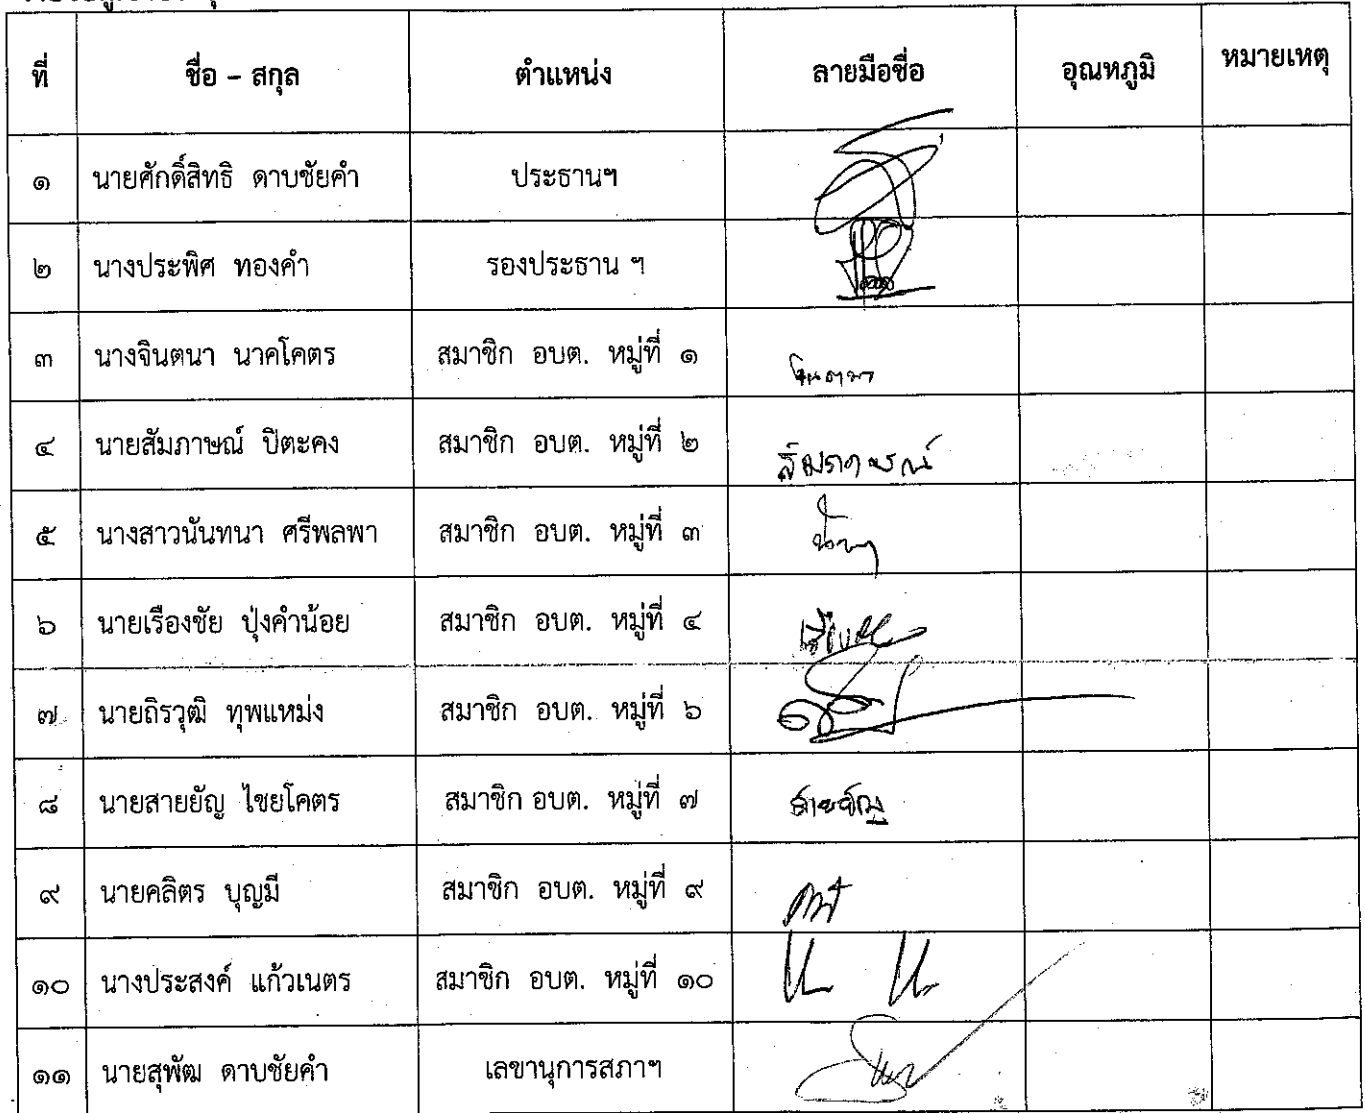 ที่ ชื่อ – สกุล ตำแหน่ง ลายมือชื่อ อุณหภูมิ หมายเหตุ
๑ นายศักดิ์สิทธิ ดาบชัยคำ ประธานฯ
๒ นางประพิศ ทองคำ รองประธาน ฯ
๓ นางจินตนา นาคโคตร สมาชิก อบต. หมู่ที่ ๑ จินตนา
๔ นายสัมภาษณ์ ปิตะคง สมาชิก อบต. หมู่ที่ ๒ สัมภาษณ์
๕ นางสาวนันทนา ศรีพลพา สมาชิก อบต. หมู่ที่ ๓
๖ นายเรืองชัย ปุ่งคำน้อย สมาชิก อบต. หมู่ที่ ๔
๗ นายถิรวุฒิ ทุพแหม่ง สมาชิก อบต. หมู่ที่ ๖
๘ นายสายยัญ ไชยโคตร สมาชิก อบต. หมู่ที่ ๗ สายยัญ
๙ นายคลิตร บุญมี สมาชิก อบต. หมู่ที่ ๙
๑๐ นางประสงค์ แก้วเนตร สมาชิก อบต. หมู่ที่ ๑๐
๑๑ นายสุพัฒ ดาบชัยคำ เลขานุการสภาฯ